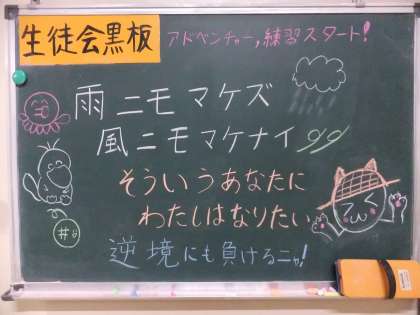 生徒会黒板
アドベンチャー,練習スタート!
雨ニモマケズ
風ニモマケナイ
そういうあなたに
わたしはなりたい
逆境にも負けるニャ!